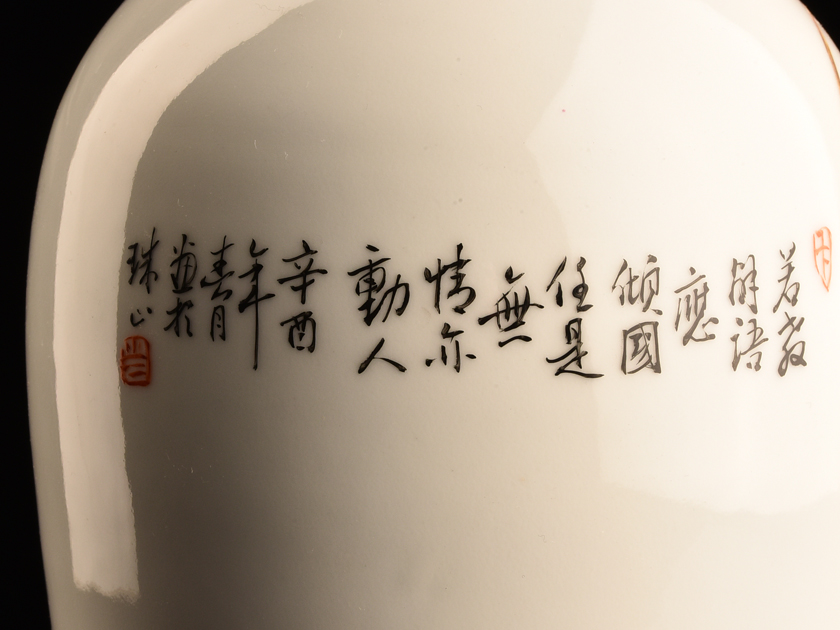 若教
解語
應
傾國
任是
無
情亦
動人
辛酉
年
春月
畫於
珠山